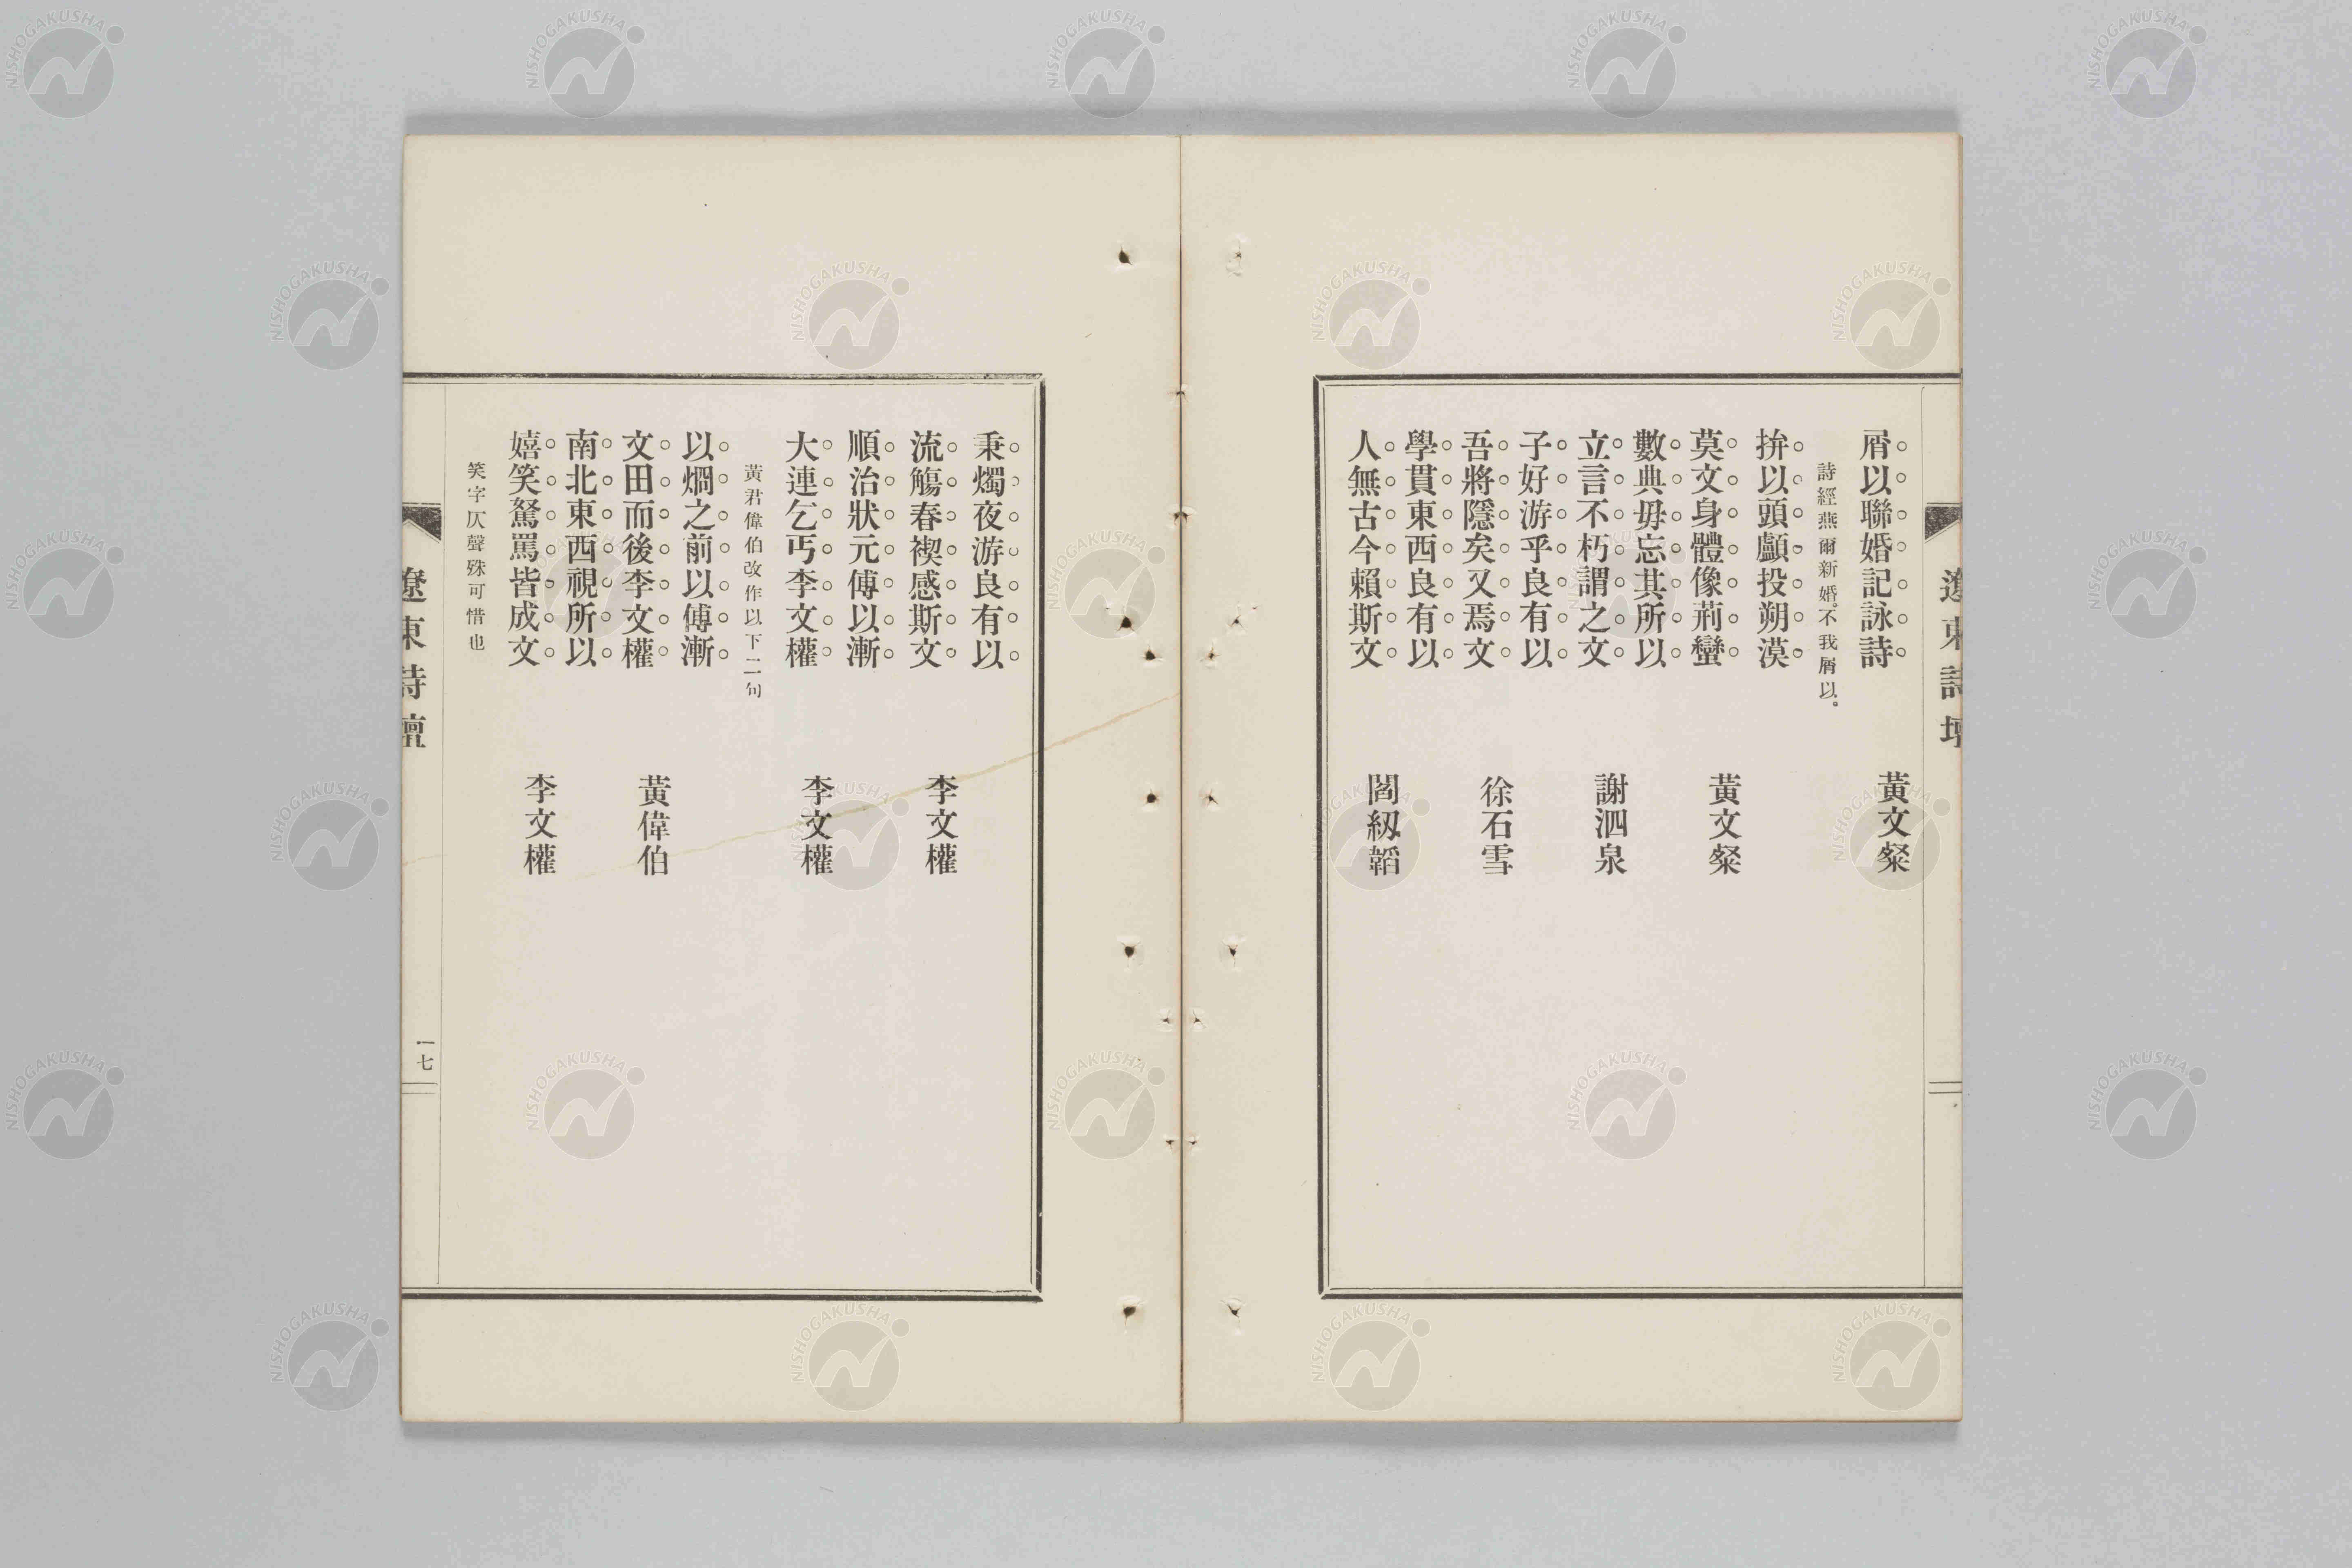 遼東詩壇
屑以聯婚記詠詩
黃文粲
詩經燕爾新婚。不我屑以。
拚以頭顱投朔漠
莫文身體像荊蠻
黃文粲
數典毋忘其所以
立言不朽謂之文
謝泗泉
子好游乎良有以
吾將隱矣又焉文
徐石雪
學貫東西良有以
人無古今賴斯文
閻紉韜
秉燭夜游良有以
流觴春禊感斯文
李文權
順治狀元傅以漸
大連乞丐李文權
李文權
黃君偉伯改作以下二句
以燗之前以傅漸
文田而後李文權
黃偉伯
南北東西視所以
嬉笑駑罵皆成文
李文權
笑字仄聲殊可惜也
遼東詩壇
一七
NISHOGAKUSHA